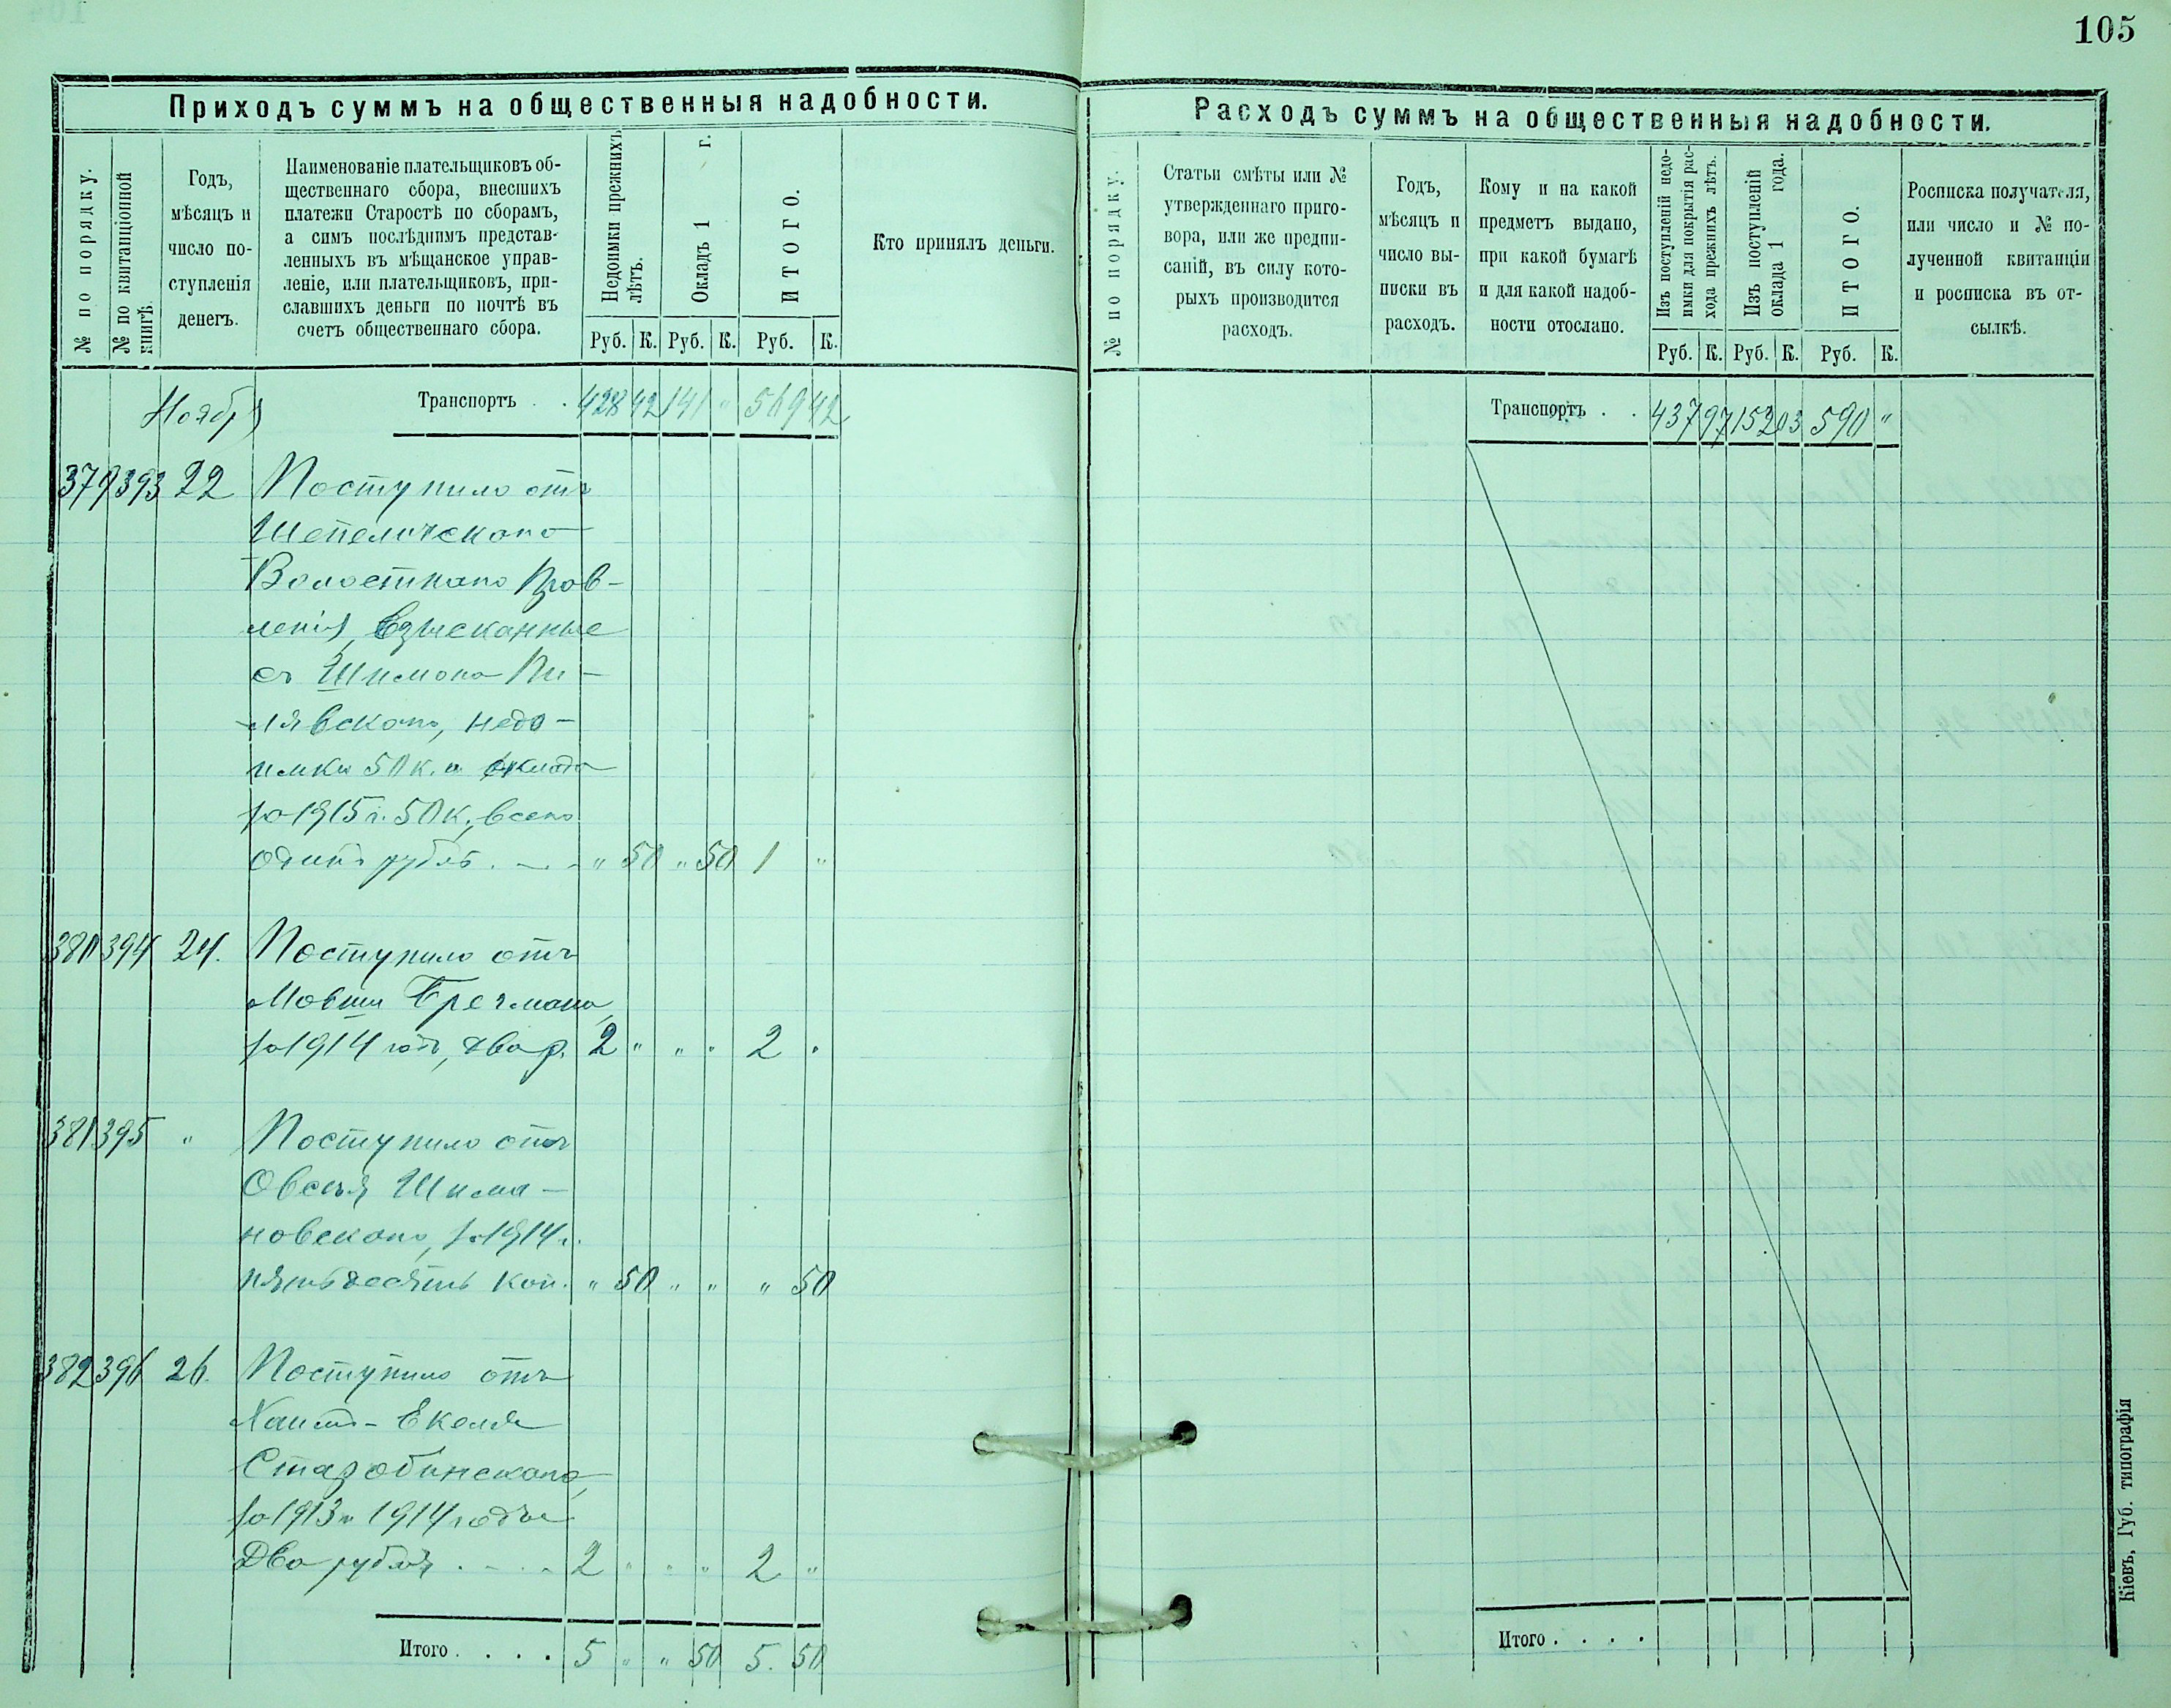 105
Приходъ суммъ на общественныя надобности.
№ по порядку.
№ по квитанціонной
книгѣ.
Годъ,
мѣсяцъ и
число по-
ступленія
денегъ.
Наименованіе плательщиковъ об-
щественнаго сбора, внесшихъ
платежи Старостѣ по сборамъ,
а симъ послѣднимъ представ-
ленныхъ въ мѣщанское управ-
леніе, или плательщиковъ, при-
славшихъ деньги по почтѣ въ
счетъ общественнаго сбора.
Недоимки прежнихъ
лѣтъ.
Окладъ 1 г.
ИТОГО.
Руб. К. Руб. К. Руб. К.
Кто принялъ деньги.
Ноябрь Транспортъ . . 428 42 141 " 569 42
379 393 22 Поступило отъ
Шепеличскаго
Волостнаго Прав-
ленія, взысканные
съ Шимона Пи-
лявскаго, недо-
имки 50 к. и оклада
за 1915 г. 50 к., всего
одинъ рубль . — - " 50 " 50 1 "
380 394 24. Поступило отъ
Мовши Бречмана,
за 1914 годъ, два р. 2 " " " 2 "
381 395 " Поступило отъ
Овсея Шима-
новскаго, за 1914 г.
пятьдесятъ коп. " 50 " " " 50
382 396 26. Поступило отъ
Хаимъ-Екеля
Старобинскаго,
за 1913 и 1914 годы
Два рубля . - . . 2 " " " 2 "
Итого . . . . 5 " " 50 5. 50
Расходъ суммъ на общественныя надобности.
№ по порядку.
Статьи смѣты или №
утвержденнаго приго-
вора, или же предпи-
саній, въ силу кото-
рыхъ производится
расходъ.
Годъ,
мѣсяцъ и
число вы-
писки въ
расходъ.
Кому и на какой
предметъ выдано,
при какой бумагѣ
и для какой надоб-
ности отослано.
Изъ поступленій недо-
имки для покрытія рас-
хода прежнихъ лѣтъ.
Изъ поступленій
оклада 1 года.
ИТОГО.
Руб. К. Руб. К. Руб. К.
Росписка получателя,
или число и № по-
лученной квитанціи
и росписка въ от-
сылкѣ.
Транспортъ . . 437 97 152 03 590 "
Итого . . . .
Кіевъ, Губ. типографія